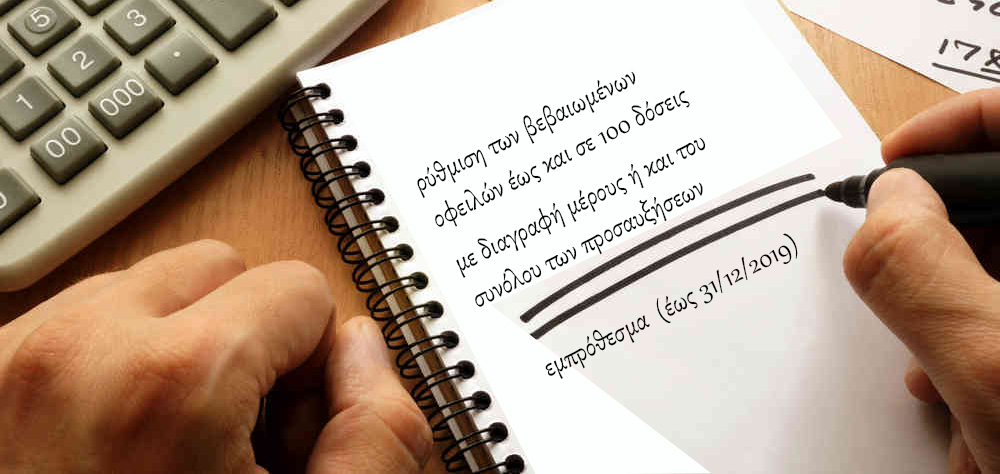 5
3
2
.
1
000
00
0
178
ρύθμιση των βεβαιωμένων
οφειλών έως και σε 100 δόσεις
με διαγραφή μέρους ή και του
συνόλου των προσαυξήσεων
εμπρόθεσμα (έως 31/12/2019)